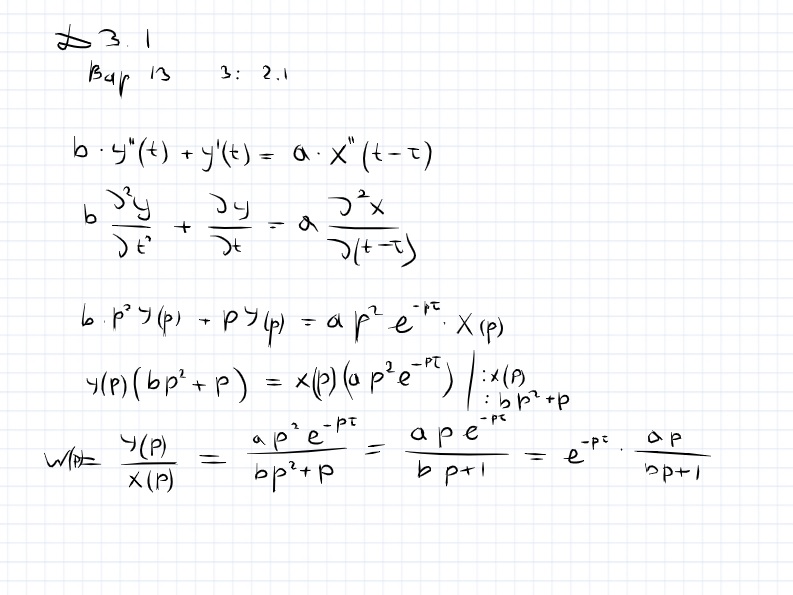 ДЗ. 1
Вар 13 3: 2.1
b · y''(t) + y'(t) = a · x''(t-τ)
b ∂²y/∂t² + ∂y/∂t = a ∂²x/∂(t-τ)
b · p² Y(p) + p Y(p) = a p² e^{-pτ} · X(p)
Y(p)(bp² + p) = X(p)(a p² e^{-pτ}) | : X(p)
: bp² + p
W(p) = Y(p)/X(p) = a p² e^{-pτ}/(bp² + p) = a p e^{-pτ}/(b p + 1) = e^{-pτ} · ap/(bp + 1)